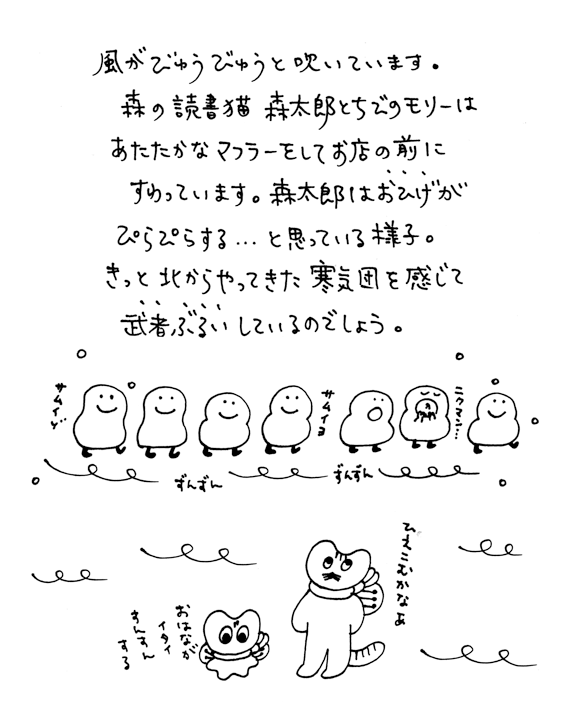 風がびゅうびゅうと吹いています。
森の読書猫 森太郎とちびのモリーは
あたたかなマフラーをしてお店の前に
すわっています。森太郎はおひげが
ぴらぴらする…と思っている様子。
きっと北からやってきた寒気団を感じて
武者ぶるいしているのでしょう。
サムイゾ
サムイヨ
ニクマン…
ずんずん
ずんずん
ひえこむかなあ
おはなが
イタイ
きんきん
する